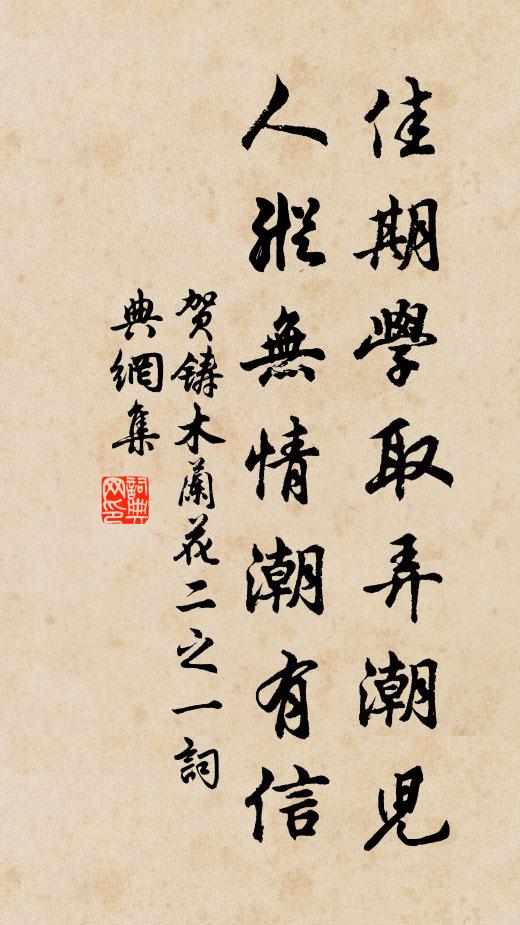 佳期學取弄潮兒
人縱無情潮有信
賀鑄木蘭花二之一詞
典網集
詞典
网印